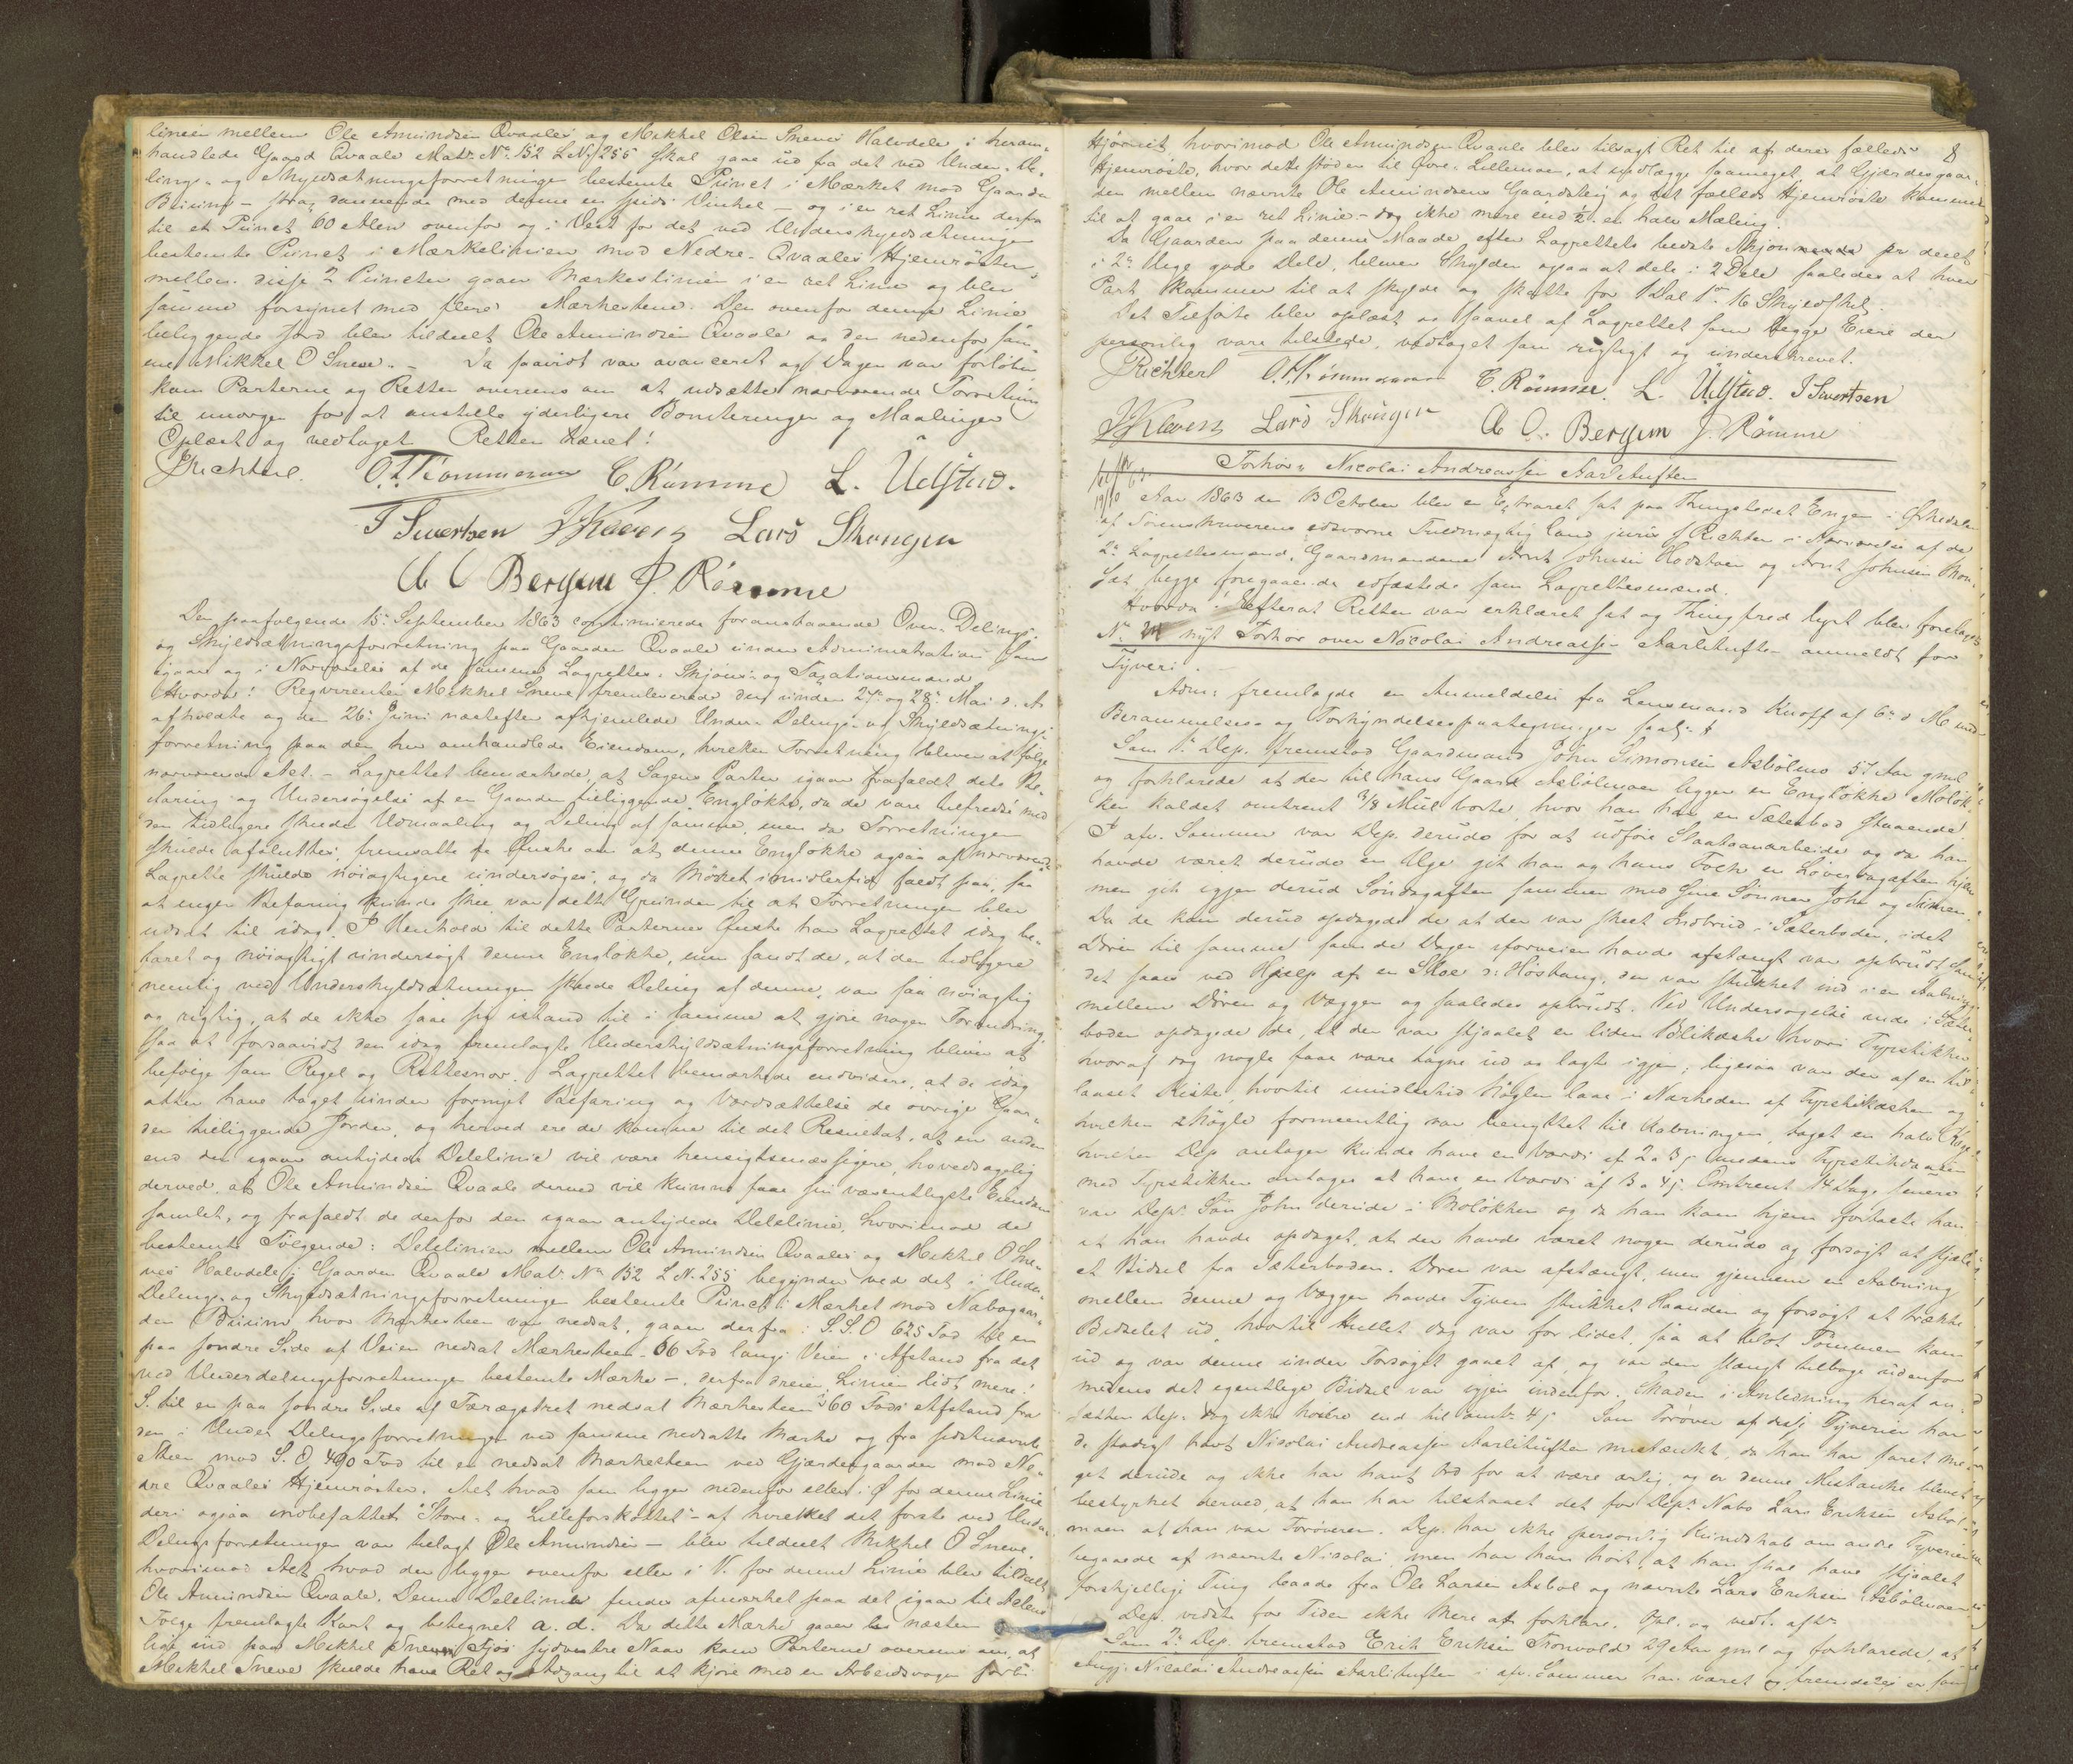 linien mellem Ole Amundsen Qvaales og Mikkel Olsen Sneves Halvdele i heram-
handlede Gaard Qvaale Matr. No. 152 L.No. 255 skal gaae ud fra det ved Under-De-
lings- og Skyldsætningsforretningen bestemte Punct i Mærket mod Gaarden
dannende med denne en spids Vinkel - og i en ret Linie derfra
til et Punct 60 Alen ovenfor og i Vest for det ved Underskyldsætningen
bestemte Punct i Mærkelinien mod Nedre-Qvaales Hjemröster,
mellem disse 2 Puncter gaaer Mærkeslinien i en ret Linie og blev
samme forsynet med flere Mærkestene. Den ovenfor denne Linie
beliggende Jord blev tildeelt Ole Amundsen Qvaale og den nedenfor sam-
me Mikkel O Sneve. - Da saavidt var avanceret og Dagen var forløben
kom Parterne og Retten overeens om at udsætte nærværende Forretning
til imorgen for at anstille yderligere Boniteringer og Maalinger
Oplæst og vedtaget Retten hævet!
JRichter. O.T.Tommeraas C. Römme L. Uelstad.
I Sivertsen JKlevens Lars Skougen
A O Bergem J. Römme
Den paafølgende 15de September 1863 continuerede foranstaaende Over-Delings-
og Skyldsætningsforretning paa Gaarden Qvaale under Administration som
igaar og i Nærværelse af de samme Lagrettes- Skjöns- og Taxationsmænd
Hvorda! Reqvirenten Mikkel Sneve fremleverede den under 27de og 28de Mai d. A.
afholdte og den 26de Juni næstefter afhjemlede Under-Delings- og Skyldsætnings-
forretning paa den her omhandlede Eiendom, hvilken Forretning bliver at følge
nærværende Act. - Lagrettet bemærkede, at Sagens Parter igaar frafaldt dets Be-
faring og Undersøgelse af en Gaarden tilliggende Engløkke, da de vare tilfredse med
den tidligere skeede Udmaaling og Deling af samme, men da Forretningen
skulde afsluttes, fremsatte de Ønske om at denne Engløkke ogsaa af nærværende
Lagrette skulde nöiagtigere undersøges, og da Mörket imidlertid faldt paa, saa
at ingen Befaring kunde skee, var dette Grunden til at Forretningen blev
udsat til idag. I Henhold til dette Parternes Ønske har Lagrettet idag be-
faret og nöiagtigt undersøgt denne Engløkke, men fandt de, at den tidligere
nemlig ved Underskyldsætningen skeede Deling af denne, var saa nöiagtig
og rigtig, at de ikke saae sig istand til i samme at gjøre nogen Forandring,
saa at forsaavidt den idag fremlagte Underskyldsætningsforretning bliver at
befølge som Regel og Rettesnor. Lagrettet bemærkede endvidere, at de idag
atter have taget under fornyet Befaring og Værdsættelse de øvrige Gaar-
den tilliggende Jorder, og herved ere de komne til det Resultat, at en anden
end den igaar antydede Delelinie vil være hensigtsmæssigere, hovedsagelig
derved, at Ole Amundsen Qvaale derved vil kunne faae sin væsentligste Eiendom
samlet, og frafaldt de derfor den igaar antydede Delelinie, hvorimod de
bestemte Følgende: Delelinien mellem Ole Amundsen Qvaales og Mikkel O Sne-
ves Halvdele i Gaarden Qvaale Matr No 152 L.N. 255 begynder ved det i Under-
Delings- og Skyldsætningsforretningen bestemte Punct i Mærket mod Nabogaar-
den hvor Mærkesteen var nedsat, gaaer derfra i S.S.O 625 Fod til en
paa søndre Side af Veien nedsat Mærkesteen - 66 Fod langs Veien i Afstand fra det
ved Underdelingsforretningen bestemte Mærke -, derfra dreier Linien lidt mere i
S. til en paa søndre Side af nedsat Mærkesteen i 60 Fods Afstand fra
den i Under Delingsforretningen ved samme nedsatte Mærke og fra sidstnævnte
Steen mod S.O, 490 Fod til en nedsat Mærkesteen ved Gjærdesgaarden mod Ne-
dre Qvaales Hjemröster. Alt hvad som ligger nedenfor eller i Ø for denne Linie
deri ogsaa indbefattet Store- og Lilleforskottet - af hvilket det første ved Under-
Delingsforretningen var tillagt Ole Amundsen - blev tildeelt Mikkel O Sneve,
hvorimod Alt hvad der ligger ovenfor eller i V. for denne Linie blev tildeelt
Ole Amundsen Qvaale. Denne Delelinie findes afmærket paa det igaar til Actens
Følge fremlagte Kort og betegnet a. d. Da dette Mærke gaaer næsten
lige ind paa Mikkel Sneves sydvestre kom Parterne overens om, at
Mikkel Sneve skulde have Ret og Adgang til at kjøre med en Arbeidsvogn forbi
8
Hjørnet hvorimod Ole Amundsen Qvaale blev tilsagt Ret til af deres fælleds
Hjemröste, hvor dette støder til Øvre-Lillemoen, at indlægge saameget, at Gjærdesgaar-
den mellem nævnte Ole Amundsens Gaardsteig og det fælleds Hjemröste kommer
til at gaae i en ret Linie - dog ikke mere end ½ en halv Mæling.
Da Gaarden paa denne Maade efter Lagrettets bedste Skjönnende er deelt
i 2de lige gode Dele, bliver Skylden ogsaa at dele i 2 Dele saaledes at hver
Part kommer til at skylde og skatte for 1 Dal 1 16 Skyldskil.
Det Tilførte blev oplæst og saavel af Lagrettet som begge Eiere der
personlig vare tilstede, vedtaget som rigtigt og underskrevet.
JRichter O.T.Tömmeraas C. Römme. L. Uelstad. I Sivertsen
JKlevens Lars Skougen A O. Bergem J. Römme
Forhör Nicolai Andreassen Aarlituften
19/10 63
Aar 1863 den 13 October blev en Extraret sat paa Thingstedet Enge i Ørkedalen
af Sorenskriverens edsvorne Fuldmægtig cand juris J Richter i Nærværelse af de
2de Lagrettesmænd, Gaardmændene Arnt Johnsen Hoston og Arnt Johnsen Mon-
begge foregaaende edfæstede som Lagrettesmænd.
Hvorda! Efterat Retten var erklæret sat og Thingfred lyst blev foretaget:
No nyt Forhør over Nicolai Andreassen Aarlituften anmeldt for
Tyveri. -
Adm: fremlagde en Anmeldelse fra Lensmand Knoff af 6te d M med
Berammelses- og Forkyndelsespaategninger saal:
Som 1ste Dep. fremstod Gaardmand John Simonsen Asbölmo 57 Aar gml
og forklarede at der til hans Gaard Asbölmoen ligger en Engløkke Moløk-
ken kaldet omtrent 3/8 Miil borte, hvor han har en Sæterbod staaende
I afv. Sommer var Dep. derude for at udføre Slaataanarbeide og da han
havde været derude en Uge gik han og hans Folk en Løverdagaften hjem
men gik igjen derud Søndagaften sammen med sine Sønner John og Simen.
Da de kom derud opdagede de at der var skeet Indbrud i Sæterboden, idet
Dören til samme som de Dagen iforveien havde afstængt var opbrudt Saa-
det saaes ved Hjælp af en Staar i Höstang, der var stukket ind i en Aabning
mellem Dören og Væggen og saaledes opbrudt. Ved Undersøgelse inde i Sæter-
boden opdagede de, at der var stjaalet en liden Blikdaase hvori Fyrstikker
hvoraf dog nogle faae vare tagne ud og lagte igjen; ligesaa var der af en til-
laaset Kiste, hvortil imidlertid Nøglen laae i Nærheden af Fyrstikdaasen og
hvilken Nøgle formentlig var benyttet til Aabningen, taget en halv
hvilken Dep antager kunde have en Værdi af 2 a 3 medens Fyrstikdaasen
med Fyrstikker antages at have en Værdi af 3 a 4 . Omtrent 14 Dage senere
var Dep. Sön John derude i Moløkken og da han kom hjem fortalte han
at han havde opdaget, at der havde været nogen derude og forsøgt at stjæle
et Bidsel fra Sæterboden. Dören var afstængt, men gjennem en Aabning
mellem denne og Væggen havde Tyven stukket Haanden og forsøgt at trække
Bidselet ud, hvortil Hullet dog var for lidet, saa at blot Tömmen kom
ud og var denne under Forsøget gaaet af og var den slængt tilbage udenfor
medens det egentlige Bidsel var igjen indenfor. Skaden i Anledning heraf an-
sætter Dep: dog ikke høiere end til omtr 4 Som Forøver af disse Tyverier har
de stadigt havt Nicolai Andreassen Aarlituften mistænkt da han har faret me-
get derude og ikke har havt Ord for at være ærlig, og er denne Mistanke blevet
bestyrket derved, at han har tilstaaet det for Deps Nabo Lars Eriksen Asböl-
moen at han var Forøveren. Dep. har ikke personlig Kundskab om andre Tyverier
begaaede af nævnte Nicolai, men har han hørt, at han skal have stjaalet
forskjellige Ting baade fra Ole Larsen Asböl og nævnte Lars Eriksen Asbölmoen
Dep. vidste for Tiden ikke Mere at forklare. Opl. og vedt. aftr.
Som 2de Dep. fremstod Erik Eriksen Tronvold 29 Aar gml og forklarede, at
Angj. Nicolai Andreassen Aarlituften i afv. Sommer har været og fremdeles er som